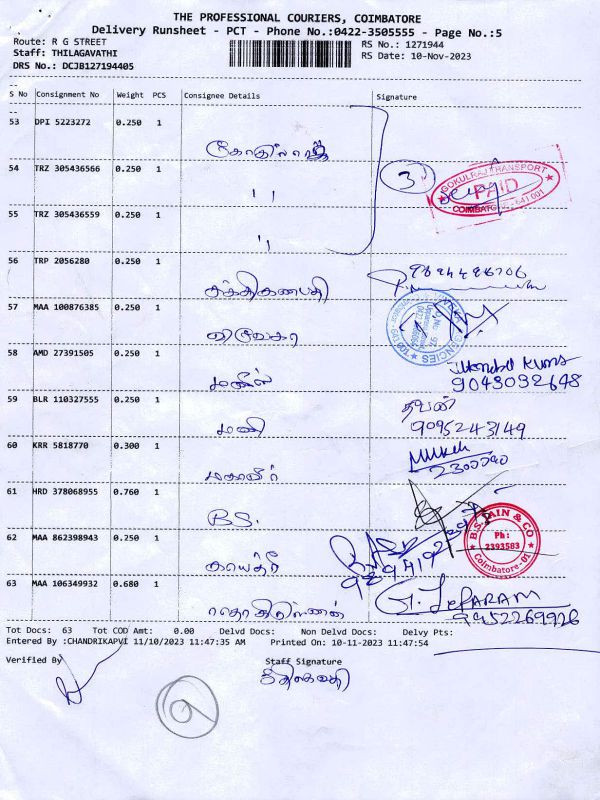 THE PROFESSIONAL COURIERS, COIMBATORE
Delivery Runsheet - PCT - Phone No.:0422-3505555 - Page No.:5
Route: R G STREET
Staff: THILAGAVATHI
DRS No.: DCJB127194405
RS No.: 1271944
RS Date: 10-Nov-2023
S No Consignment No Weight PCS Consignee Details Signature
53 DPI 5223272 0.250 1
54 TRZ 305436566 0.250 1
3
GOKULRAJ TRANSPORT
PAID
COIMBATORE - 641 001
55 TRZ 305436559 0.250 1
56 TRP 2056280 0.250 1
சக்திகணபதி
57 MAA 100876385 0.250 1
AGENCIES
58 AMD 27391505 0.250 1
மணிஸ்
9043092648
59 BLR 110327555 0.250 1
மணி
தவன்
9095243149
60 KRR 5818770 0.300 1
மகாவீர்
61 HRD 378068955 0.760 1
B.S.
B.S. JAIN & CO
Ph:
2393583
Coimbatore-01
62 MAA 862398943 0.250 1
காயத்ரீ
63 MAA 106349932 0.680 1
9952269926
Tot Docs: 63 Tot COD Amt: 0.00 Delvd Docs: Non Delvd Docs: Delvy Pts:
Entered By :CHANDRIKAPVI 11/10/2023 11:47:35 AM Printed On: 10-11-2023 11:47:54
Verified By
Staff Signature